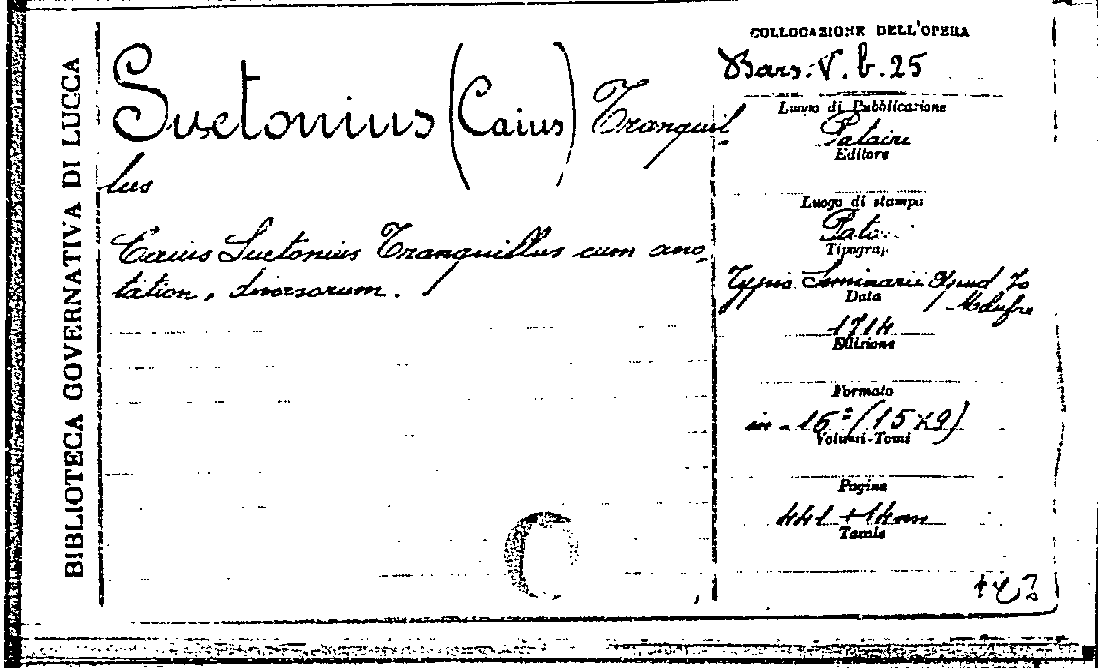 BIBLIOTECA GOVERNATIVA DI LUCCA
Suetonius (Caius) Tranquil
lus
Caius Suetonius Tranquillus cum ano-
tation, diversorum.
COLLOCAZIONE DELL'OPERA
Bars. V. b. 25
Luogo di Pubblicazione
Editore
Luogo di stampa
Tipograf.
Typis Seminarii Apud Jo
Data
1714
Edizione
Formato
in-16º (15x9)
Volumi-Tomi
Pagine
441 +
Tavole